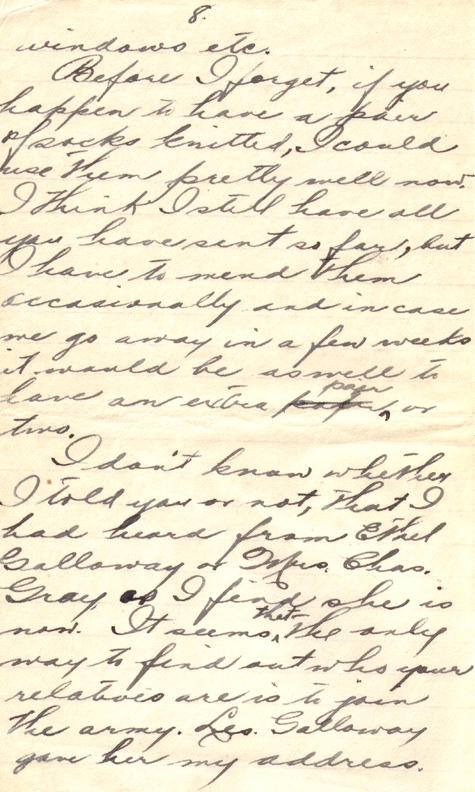 8.
windows etc.
Before I forget, if you
happen to have a pair
of socks knitted, I could
use them pretty well now.
I think I still have all
you have sent so far, but
I have to mend them
occasionally and in case
we go away in a few weeks
it would be as well to
have an extra pair, or
two.
I don't know whether
I told you or not, that I
had heard from Ethel
Galloway or Mrs. Chas.
Gray as I find she is
now. It seems that the only
way to find out who your
relatives are is to join
the army. Leo. Galloway
gave her my address.